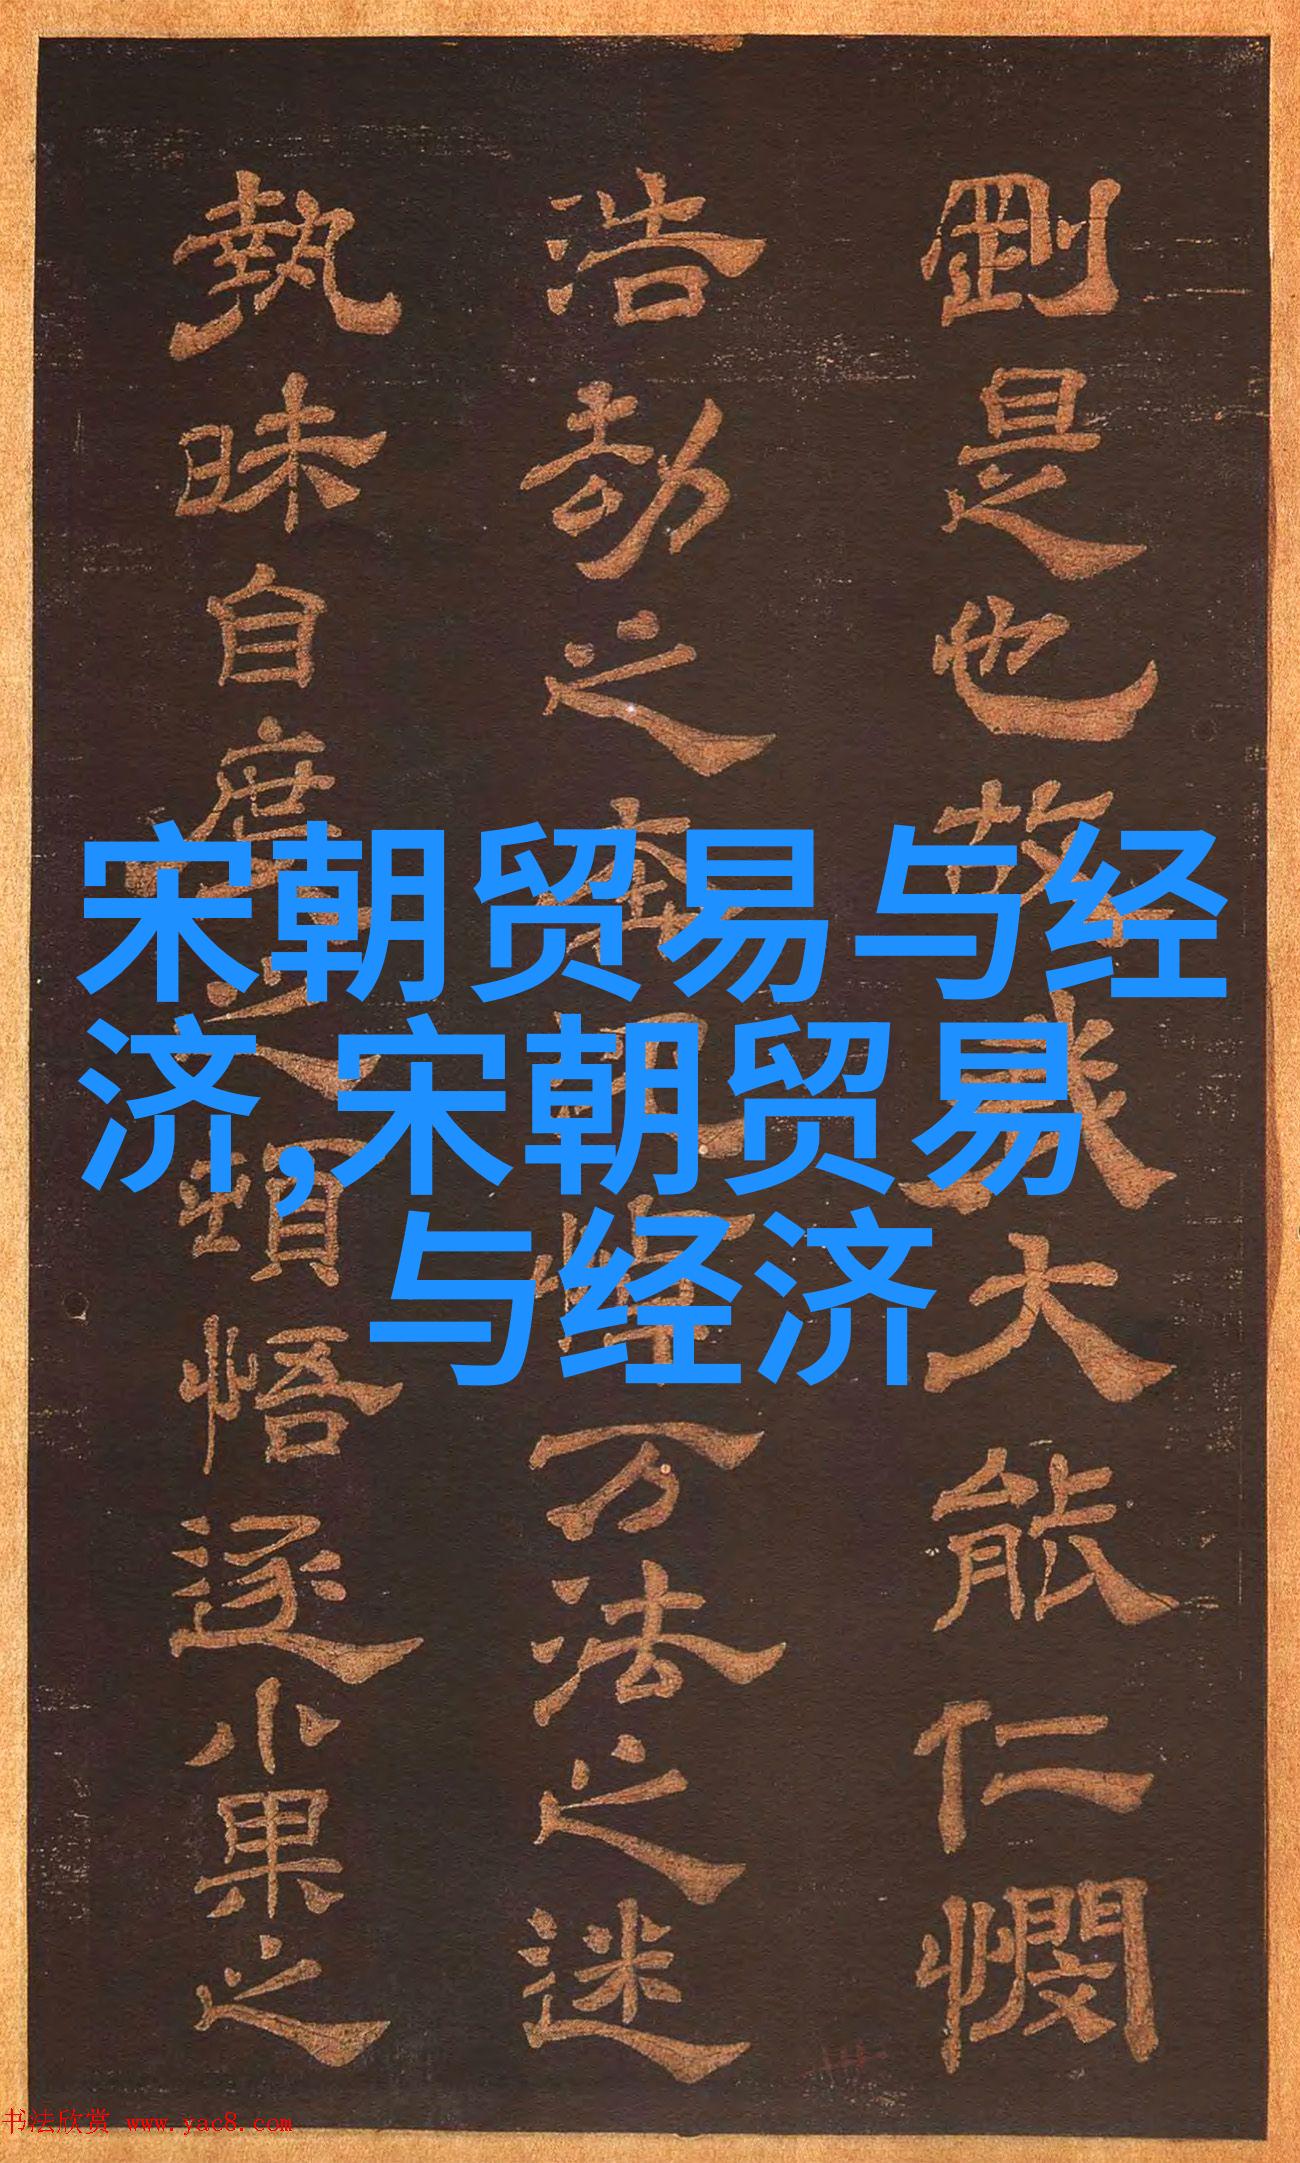 宋朝贸易与经
济,宋朝贸易
与经济
剛是也故我大能仁憫
浩劫之万法之迷
執昧自度之頓悟逐小果之
书法欣赏 www.yac8.com